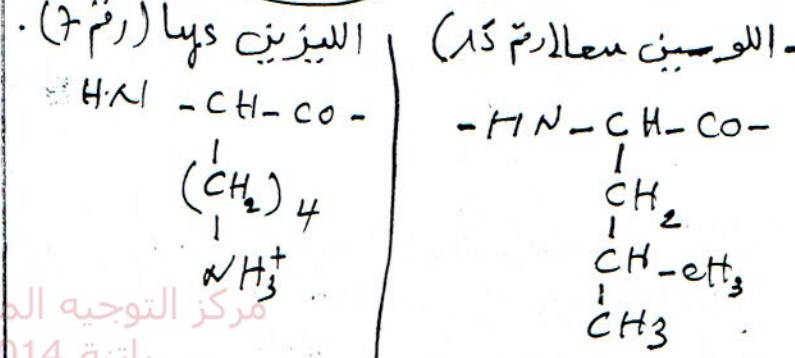 - اللوسين Leu (رقم 15)
- HN - CH - CO -
CH2
CH - CH3
CH3
الليزين Lys (رقم 7).
HN - CH - CO -
(CH2)4
NH3+
مركز التوجيه الم
باتنة 014